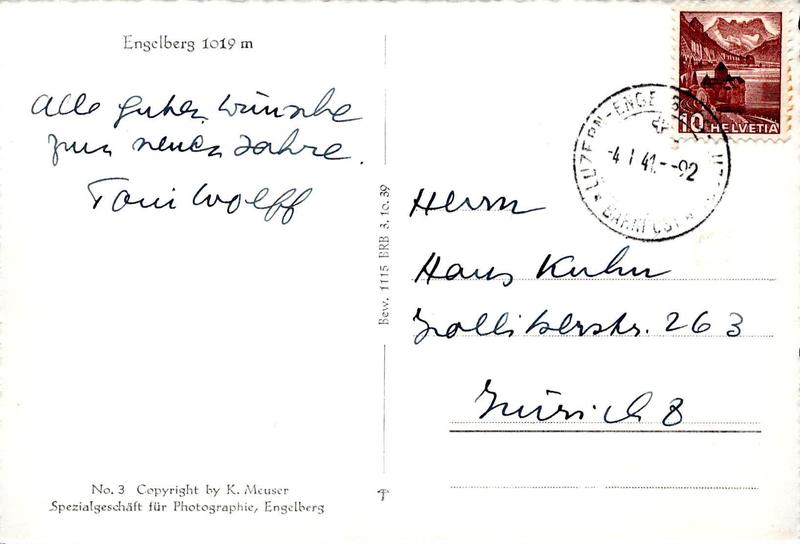 Engelberg 1019 m
Alle guten Wünsche
zum neuen Jahre.
Toni Wolff
No. 3 Copyright by K. Meuser
Spezialgeschäft für Photographie, Engelberg
Bew. 1115 BRB 3. 10. 39
10 HELVETIA
LUZERN-ENGE
-4. I 41.--92
BAHNPOST
Herrn
Hans Kuhn
Zollikerstr. 263
Zürich 8